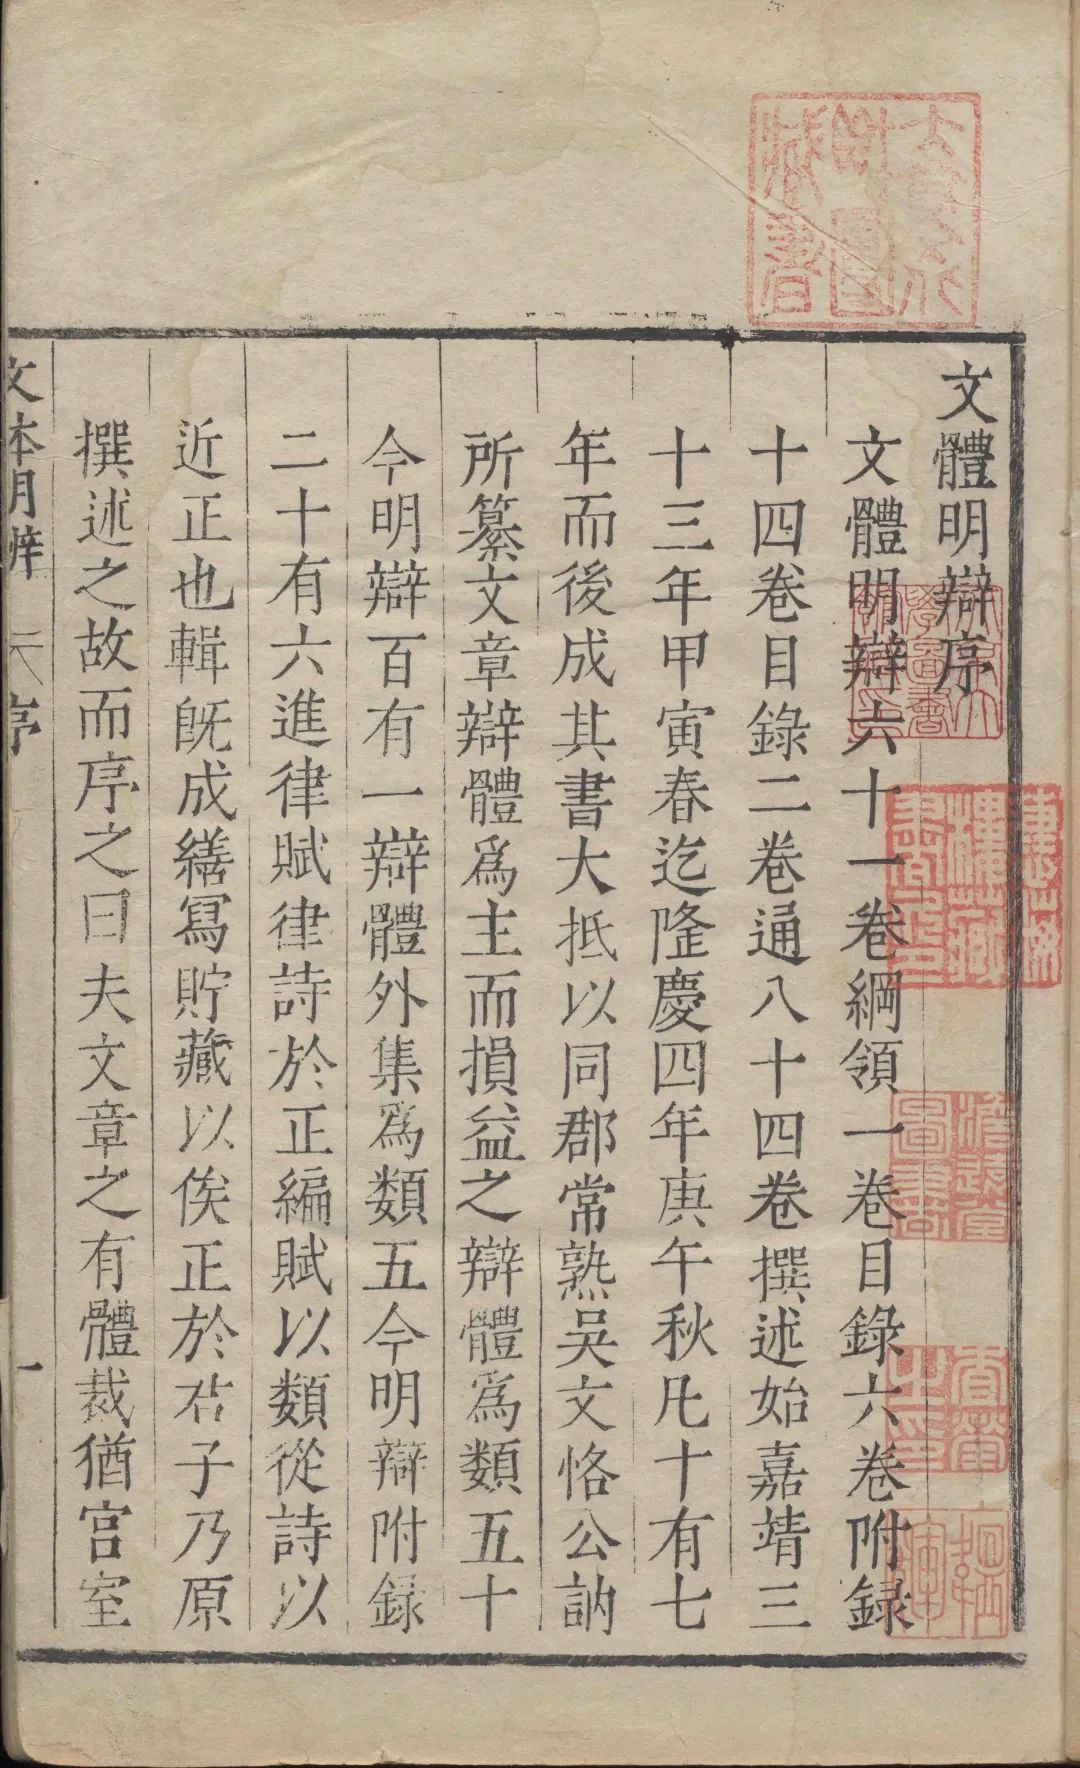 文體明辯序
文體明辯六十一卷綱領一卷目錄六卷附録
十四卷目錄二卷通八十四卷撰述始嘉靖三
十三年甲寅春迄隆慶四年庚午秋凡十有七
年而後成其書大抵以同郡常熟吳文恪公訥
所纂文章辯體爲主而損益之辯體爲類五十
今明辯百有一辯體外集爲類五今明辯附錄
二十有六進律賦律詩於正編賦以類從詩以
近正也輯旣成繕寫貯藏以俟正於君子乃原
撰述之故而序之曰夫文章之有體裁猶宮室
序
一